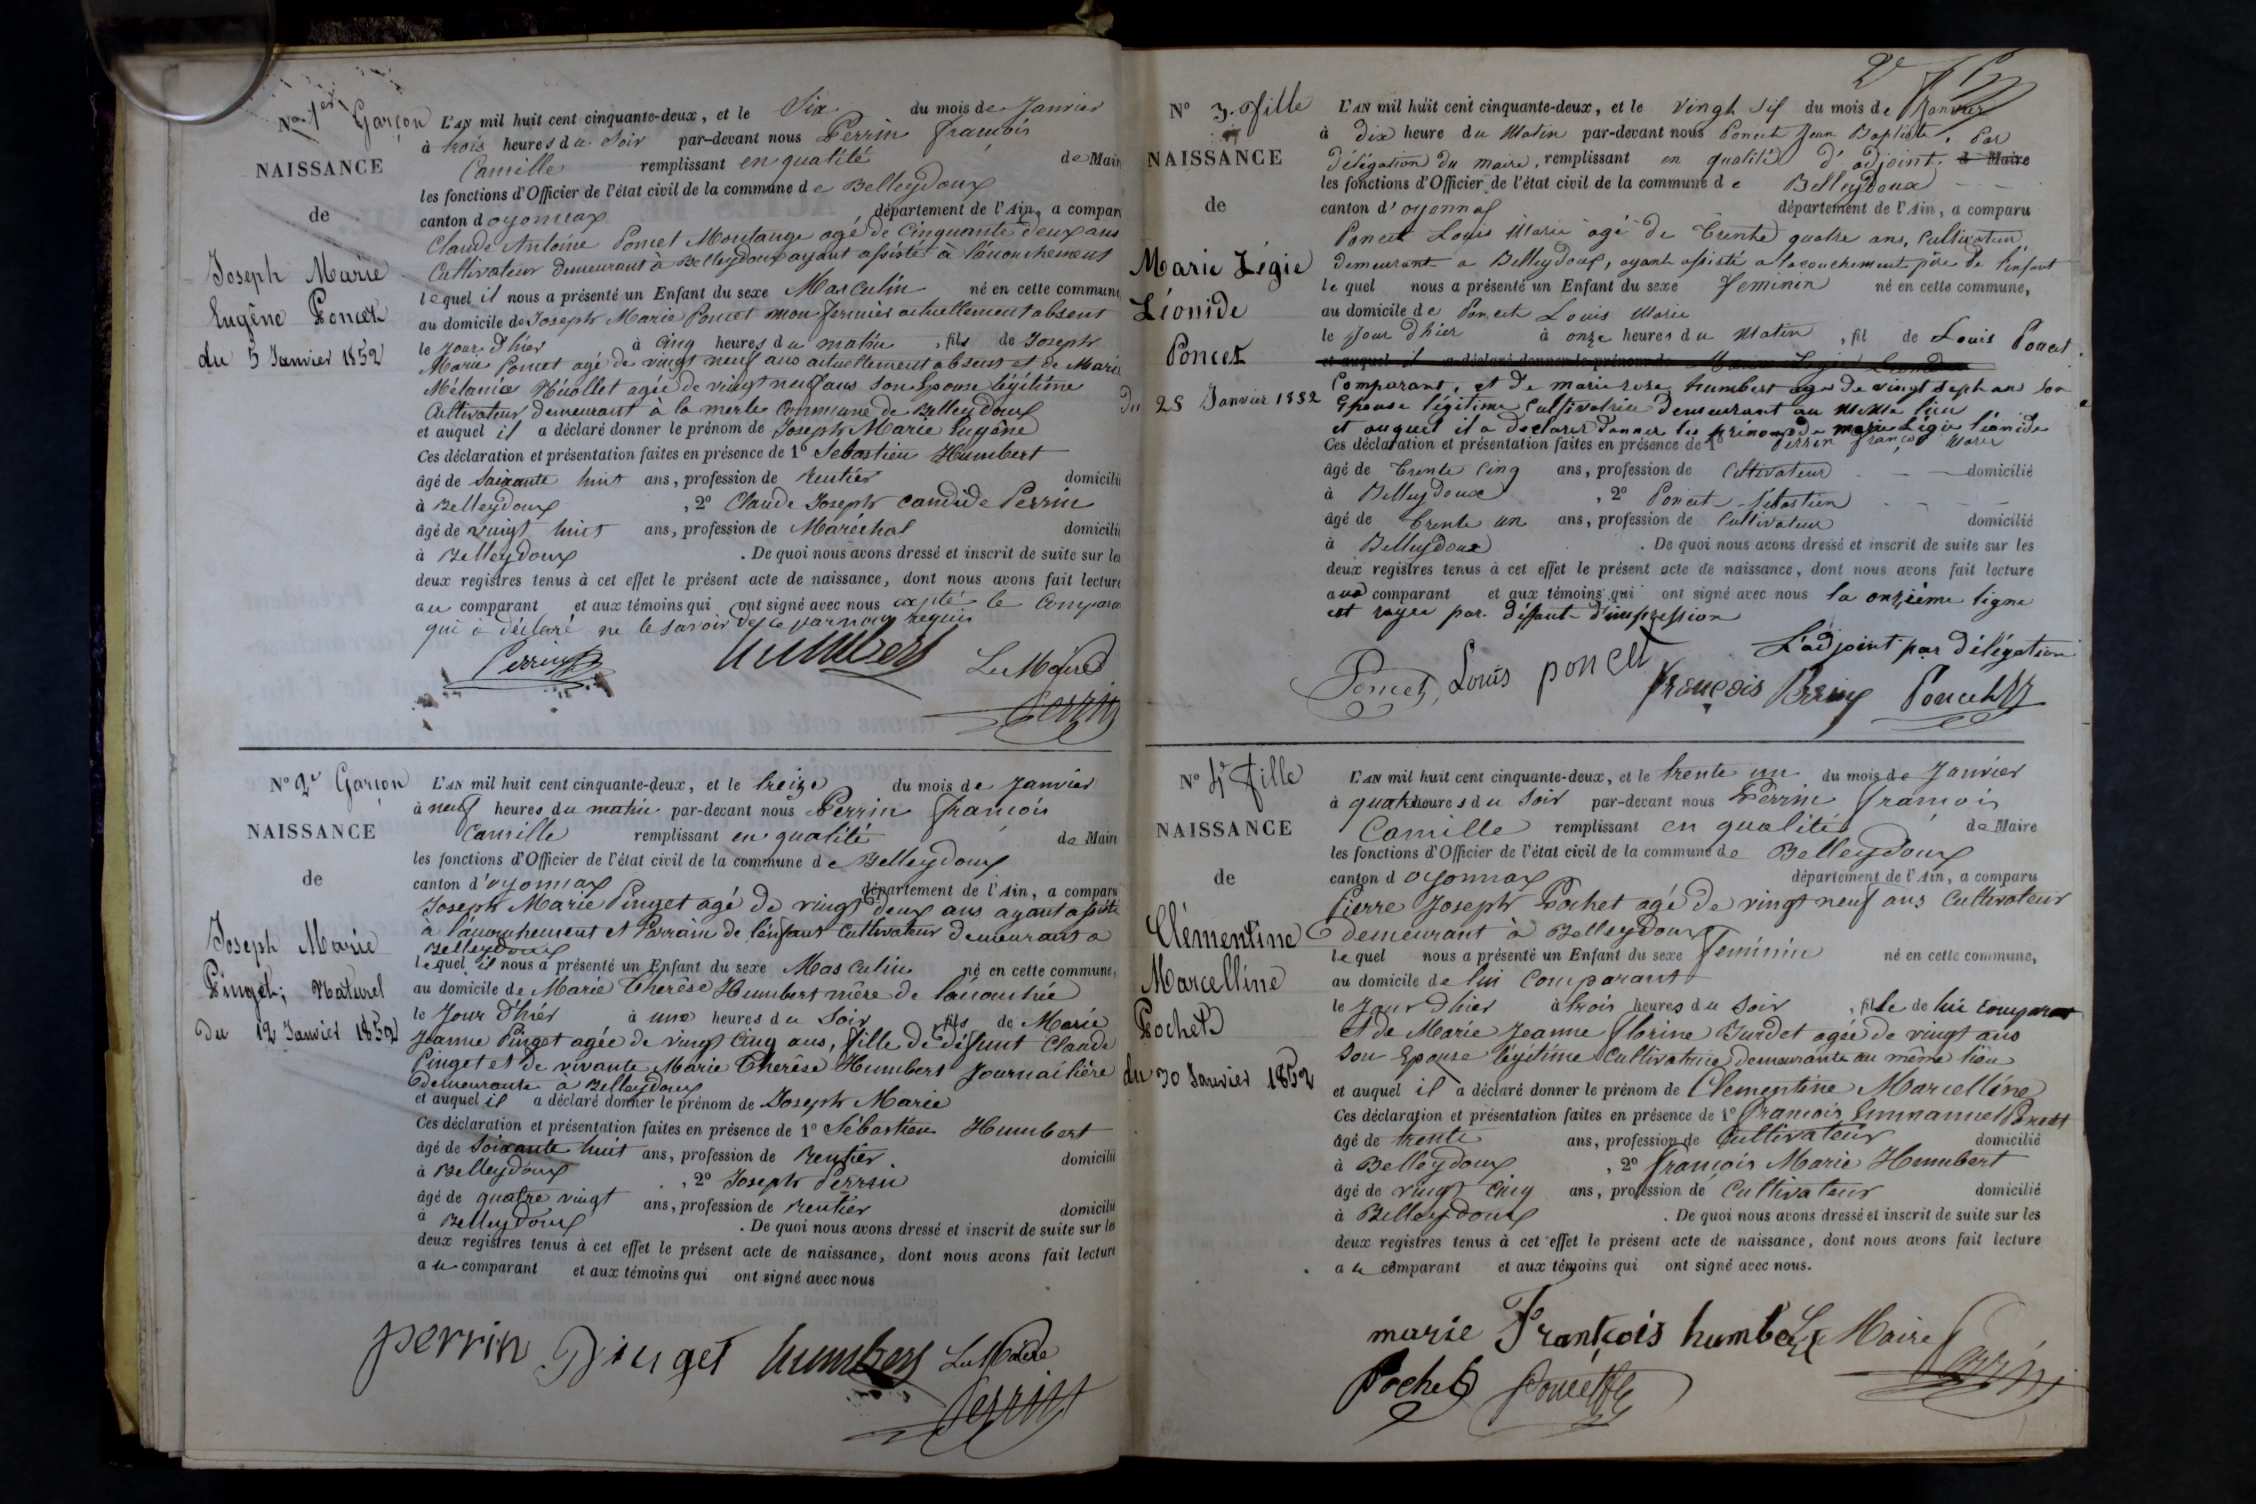 No 1er Garçon
NAISSANCE
de
Joseph Marie
Eugène Poncet
du 5 Janvier 1852
L'AN mil huit cent cinquante-deux, et le Six du mois de Janvier
à trois heures du Soir par-devant nous Perrin françois
Camille remplissant en qualité de Maire
les fonctions d'Officier de l'état civil de la commune de Belleydoux
canton d'oyonnax département de l'Ain, a comparu
Claude Antoine Poncet Montange agé de Cinquante deux ans
Cultivateur demeurant à Belleydoux ayant assisté à l'acouchement
lequel il nous a présenté un Enfant du sexe Masculin né en cette commune
au domicile de Joseph Marie Poncet mon fermier actuellement absent
le Jour d'hier à cinq heures du matin, fils de Joseph
Marie Poncet agé de vingt neuf ans actuellement absent et de Marie
Mélanie agée de vingt neuf ans son Epouse légitime
Cultivateur demeurant à la merle Commune de Belleydoux
et auquel il a déclaré donner le prénom de Joseph Marie Eugène
Ces déclaration et présentation faites en présence de 1° Sebastien Humbert
âgé de Soixante huit ans, profession de Rentier domicilié
à Belleydoux, 2° Claude Joseph candide Perrin
âgé de vingt huit ans, profession de Maréchal domicilié
à Belleydoux. De quoi nous avons dressé et inscrit de suite sur les
deux registres tenus à cet effet le présent acte de naissance, dont nous avons fait lecture
au comparant et aux témoins qui ont signé avec nous le Comparant
qui a déclaré ne le savoir requis
Perrin humbert Le Maire
Perrin
No 2e Garçon
NAISSANCE
de
Joseph Marie
Pinget; Naturel
du 12 Janvier 1852
L'AN mil huit cent cinquante-deux, et le treize du mois de Janvier
à neuf heures du matin par-devant nous Perrin françois
Camille remplissant en qualité de Maire
les fonctions d'Officier de l'état civil de la commune de Belleydoux
canton d'oyonnax département de l'Ain, a comparu
Joseph Marie Pinget agé de vingt deux ans ayant assisté
à l'acouchement et Parrain de l'enfant Cultivateur demeurant a
Belleydoux
lequel il nous a présenté un Enfant du sexe Masculin né en cette commune,
au domicile de Marie Therèse Humbert mère de l'acouchée
le Jour d'hier à une heures du Soir, fils de Marie
Jeanne Pinget agée de vingt cinq ans, fille de défunt Claude
Pinget et de vivante Marie Therèse Humbert Journalière
demeurante à Belleydoux
et auquel il a déclaré donner le prénom de Joseph Marie
Ces déclaration et présentation faites en présence de 1° Sébastien Humbert
âgé de Soixante huit ans, profession de Rentier domicilié
à Belleydoux, 2° Joseph Perrin
âgé de quatre vingt ans, profession de Rentier domicilié
à Belleydoux. De quoi nous avons dressé et inscrit de suite sur les
deux registres tenus à cet effet le présent acte de naissance, dont nous avons fait lecture
au comparant et aux témoins qui ont signé avec nous
perrin Pinget humbert Le Maire
Perrin
2e
No 3. fille
NAISSANCE
de
Marie Légie
Léonide
Poncet
Du 25 Janvier 1852
L'AN mil huit cent cinquante-deux, et le vingt sif du mois de Janvier
à dix heure du Matin par-devant nous Poncet Jean Baptiste, Par
délégation du maire, remplissant en qualité d'adjoint. d Maire
les fonctions d'Officier de l'état civil de la commune de Belleydoux
canton d'oyonnax département de l'Ain, a comparu
Poncet Louis Marie agé de trente quatre ans, Cultivateur,
demeurant a Belleydoux, ayant assisté a l'acouchement père de l'enfant
lequel nous a présenté un Enfant du sexe feminin né en cette commune,
au domicile de Poncet Louis Marie
le jour d'hier à onze heures du Matin, fil de Louis Poncet
et auquel il a déclaré donner le prénom de
Comparant, et de marie rose humbert agé de vingt sept ans son
Epouse légitime Cultivatrice demeurant au même lieu
et auquel il a declarer donner les prénom de marie Légie léonide
Ces déclaration et présentation faites en présence de 1° Perrin françois Marie
âgé de trente Cinq ans, profession de Cultivateur domicilié
à Belleydoux, 2° Poncet Sébastien
âgé de trente un ans, profession de Cultivateur domicilié
à Belleydoux. De quoi nous avons dressé et inscrit de suite sur les
deux registres tenus à cet effet le présent acte de naissance, dont nous avons fait lecture
aux comparant et aux témoins qui ont signé avec nous la onzième ligne
est rayée par déffaut d'impression
L'adjoint par délégation
Poncet, Louis poncet françois Perrin Poncet
No 4e fille
NAISSANCE
de
Clémentine
Marcelline
Pochet
du 30 Janvier 1852
L'AN mil huit cent cinquante-deux, et le trente un du mois de Janvier
à quatre heures du Soir par-devant nous Perrin françois
Camille remplissant en qualité de Maire
les fonctions d'Officier de l'état civil de la commune de Belleydoux
canton d oyonnax département de l'Ain, a comparu
Pierre Joseph Pochet agé de vingt neuf ans Cultivateur
demeurant à Belleydoux
lequel nous a présenté un Enfant du sexe feminin né en cette commune,
au domicile de lui Comparant
le Jour d'hier à trois heures du Soir, fille de lui Comparant
et de Marie Jeanne florine Burdet agée de vingt ans
Son Epouse légitime Cultivatrice demeurante au même lieu
et auquel il a déclaré donner le prénom de Clementine Marcelline
Ces déclaration et présentation faites en présence de 1° françois Emmanuel Poncet
âgé de trente ans, profession de Cultivateur domicilié
à Belleydoux, 2° françois Marie Humbert
âgé de vingt cinq ans, profession de Cultivateur domicilié
à Belleydoux. De quoi nous avons dressé et inscrit de suite sur les
deux registres tenus à cet effet le présent acte de naissance, dont nous avons fait lecture
au comparant et aux témoins qui ont signé avec nous.
marie François humbert Le Maire
Pochet Poncet Perrin